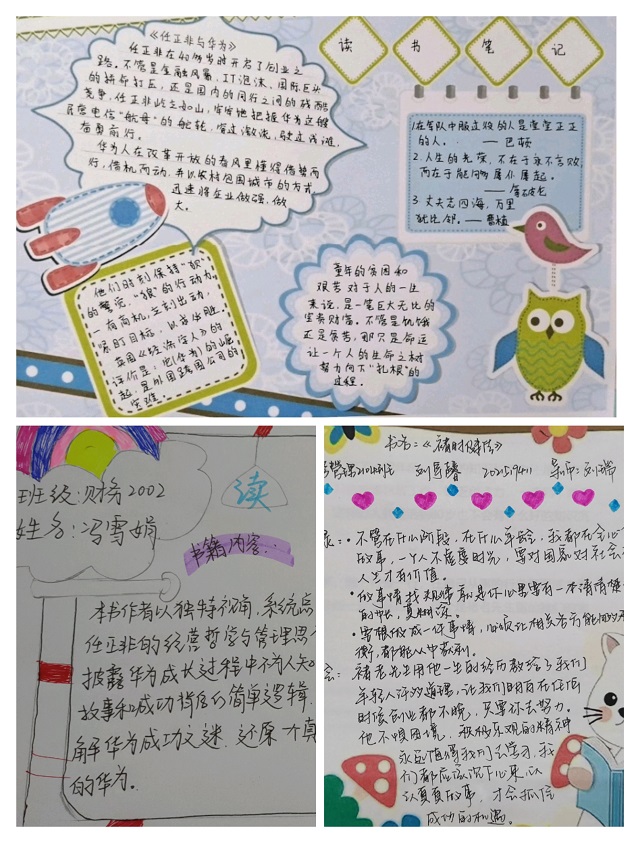 《任正非与华为》
任正非在40多岁时开启了创业之
路。不管是金融风暴、IT泡沫、国际巨头
的拼命打压,还是国内的同行之间的残酷
竞争,任正非屹立如山,牢牢地把握华为这艘
民营电信"航母"的舵轮,穿过激流,驶过浅滩,
奋勇前行。
华为人在改革开放的春风里懂得借势而
行,借机而动,并以农村包围城市的方式
迅速将企业做强、做
大。
读 书 笔 记
1.在军队中服过役的人是堂堂正正
的人。 —— 巴顿
2.人生的光荣,不在于永不言败,
而在于能够屡仆屡起。
—— 拿破仑
3.丈夫志四海,万里
犹比邻。——曹植
他们时刻保持"狼"
的警觉,"狼"的行动力,
一有商机,立刻出动,
紧盯目标,
英国《经济学人》的
评价是:"它(华为)的崛
起,是外国跨国公司的
灾难。"
童年的贫困和
艰苦对于人的一生
来说,是一笔巨大无比的
宝贵财富。不管是饥饿
还是贫苦,那只是命运
让一个人的生命之树
努力向下"扎根"的
过程。
班级:财务2002
姓名:冯雪娟
读
书籍内容:
本书作者以独特视角,系统总
任正非的经营哲学与管理思
披露华为成长过程中不为人知
故事和成功背后的简单逻辑
解华为成功之谜,还原一个真
的华为。
书名:《褚时健传》
不管在什么阶段,在什么年龄,我都在会心
故事,一个人不虚度时光,要对国家对社会
人生才有价值。
做事情找规律就是你心里要有一本清清楚
的账,莫糊涂。
要想做成一件事情,必须让相关各方能够
衡,都能从中获利。
褚老先生用他一生的经历教给了我们
年轻人许多道理,让我们明白在任何
时候创业都不晚,只要你去努力。
他不惧困境,积极乐观的精神
永远值得我们去学习,我
们都应该沉下心来,以
认真真做事,才会抓住
成功的机遇。